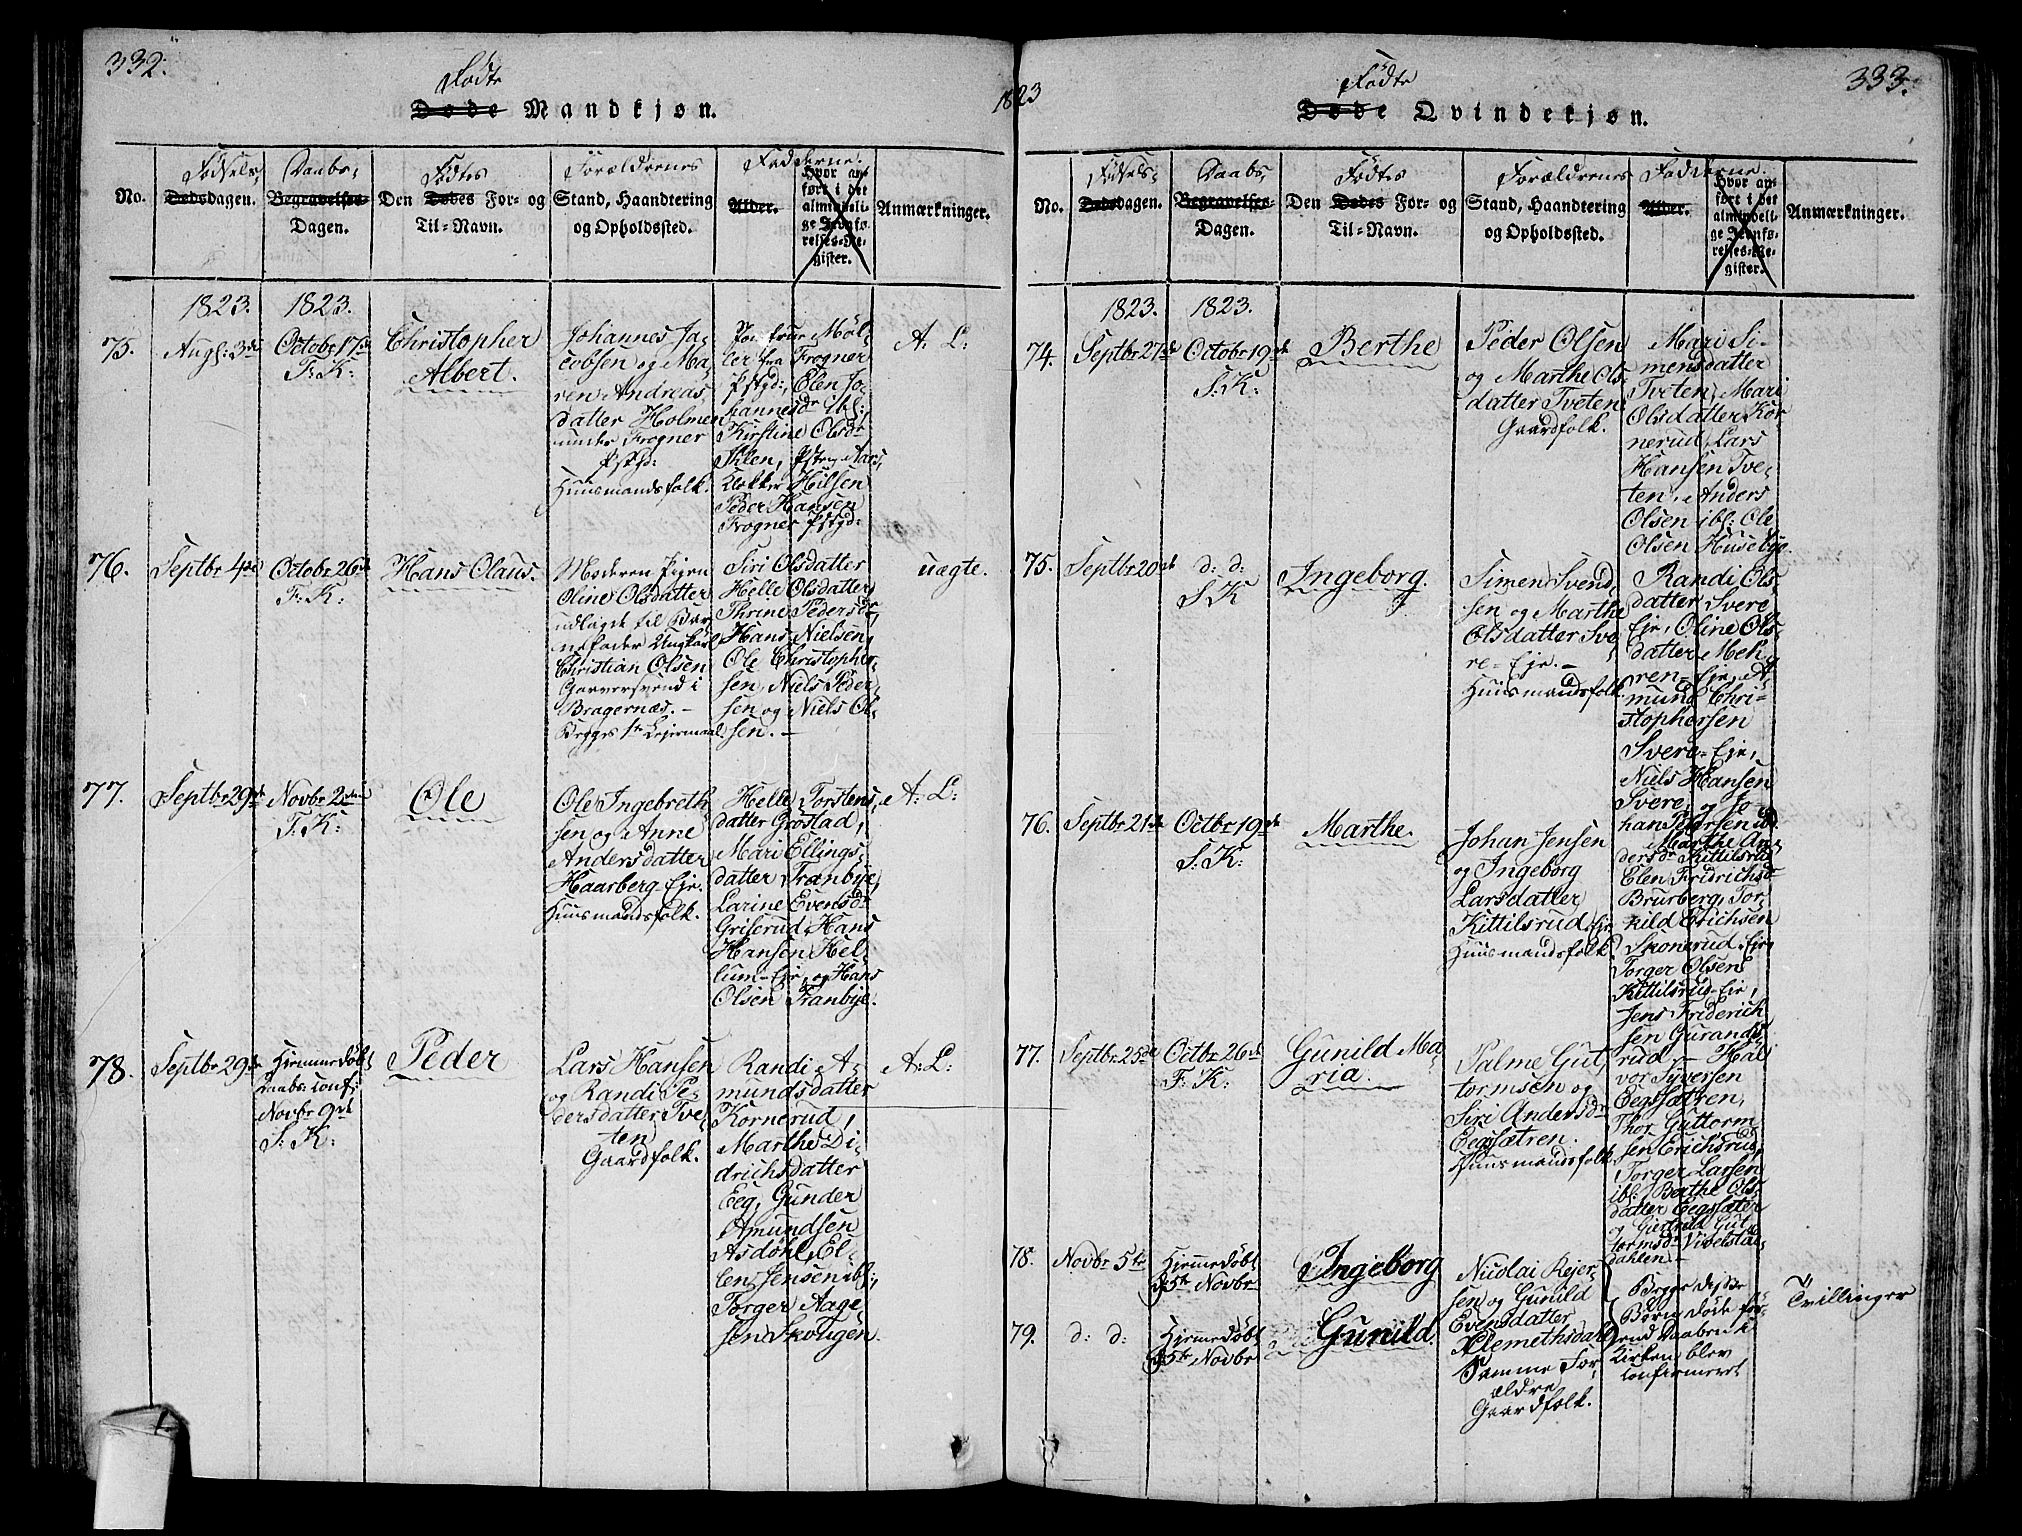 332.
Fødte
Døde Mandkjøn.
No.
Fødsels-
Dødsdagen.
Daabs-
Begravelses-
Dagen.
Fødtes
Den Dødes For- og
Til-Navn.
Forældrenes
Stand, Haandtering
og Opholdssted.
Fadderne.
Alder.
Hvor an-
ført i det
almindeli-
ge Jevnfø-
relses-Re-
gister.
Anmærkninger.
1823. 1823.
75.
Augs: 3de
Octobr 17de
F: K:
Christopher
Albert.
Johannes Ja-
cobsen og Ma-
ren Andreas-
datter Holmen
under Frogner
Pstgd:
Huusmandsfolk.
Jomfrue Møl-
ler fra Frogner
Pstgd:, Elen Jo-
hannesdr ibl:
Kirstine Olsdr
Ihlen, Pster Aars,
Klokker Hilsen
Peder Hansen
Frogner Pstgd:
A: L:
76.
Septbr 4de
Octobr 26de
F: K:
Hans Olaus.
Moderen Pigen
Oline Olsdatter
udlagde til Bar-
nefader Ungkarl
Christian Olsen
Garversvend i
Bragernæs. -
Begges 1te Leiermaal
Siri Olsdatter
Helle Olsdatter,
Thrine Pedersdr,
Hans Nielsen,
Ole Christopher-
sen, Niels Peder-
sen og Niels Ol-
sen. -
uægte.
77.
Septbr 29de
Novbr 2den
F: K:
Ole
Ole Ingebreth-
sen og Anne
Andersdatter
Haarberg Eje.
Huusmandsfolk.
Helle Torstens-
datter Grostad,
Mari Ellings-
datter Tranbye,
Larine Evensdr
Griserud, Hans
Hansen Hel-
lum-Eje, og Hans
Olsen Tranbye.
A: L:
78.
Septbr 29de
Hjemmedøbt
Daabs: conf:
Novbr 9de
S: K:
Peder
Lars Hansen
og Randi Pe-
dersdatter Tve-
ten
Gaardfolk.
Randi A-
mundsdatter
Kornerud,
Marthe Di-
drichsdatter
Eeg, Gunder
Amundsen
Asdøhl, El-
len Jensen ibl:,
Torger Aage-
sen Skougen.
A: L:
1823
333.
Fødte
Døde Qvindekjøn.
No.
Fødsels-
Dødsdagen.
Daabs-
Begravelses-
Dagen.
Fødtes
Den Dødes For- og
Til-Navn.
Forældrenes
Stand, Haandtering
og Opholdssted.
Fadderne.
Alder.
Hvor an-
ført i det
almindeli-
ge Jevnfø-
relses-Re-
gister.
Anmærkninger.
1823. 1823.
74.
Septbr 27de
Octobr 19de
S: K:
Berthe
Peder Olsen
og Marthe Ols-
datter Tveten
Gaardfolk.
Mari Si-
mensdatter
Tveten, Mari
Olsdatter Kor-
nerud, Lars
Hansen Tve-
ten, Anders
Olsen ibl: Ole
Olsen Husebye.
75.
Septbr 20de
d: d:
S: K
Ingeborg.
Simen Svend-
sen og Marthe
Olsdatter Sve-
re-Eje. -
Huusmandsfolk.
Randi Ols-
datter Svere
Eje, Oline Ols-
datter Meh-
ren-Eje, A-
mund Chri-
stophersen
Svere-Eje,
Niels Hansen
Svere, og Jo-
han Petersen ibl.
76.
Septbr 21de
Octbr 19de
S: K:
Marthe.
Johan Jensen
og Ingeborg
Larsdatter
Kittilsrud Eje
Huusmandsfolk.
Marthe An-
dersdr Kittilsrud
Elen Fridrichsdr
Brurberg, Tor-
kild Erichsen
Skonerud, Eje,
Torger Olsen
Kittilsrud-Eje,
Jens Friderich-
sen Gurands-
rud. -
77.
Septbr 25de
Octbr 26de
F: K:
Gunild Ma-
ria.
Palme Gut-
tormsen og
Siri Andersdr
Eegsætren.
Huusmandsfolk
Hal-
vor Syversen
Eegsætren,
Thor Guttorm-
sen Erichsrud,
Torger Larsen
ibl: Berthe Ols-
datter Eegsæter
og Giertrud Gut-
tormsdr Vivelstad-
dahlen. -
78.
Novbr 5te
Hjemmedøbt
d 5te Novbr
Ingeborg
Nicolai Rejer-
sen og Gunild
Evensdatter
Klemethsdahl
Begge disse
Børn døde før-
end Daaben i
Kirken blev
confirmeret
Tvillinger
79.
d: d:
Hjemmedøbt
d 5te Novbr
Gunild.
Samme For-
ældre
Gaardfolk.